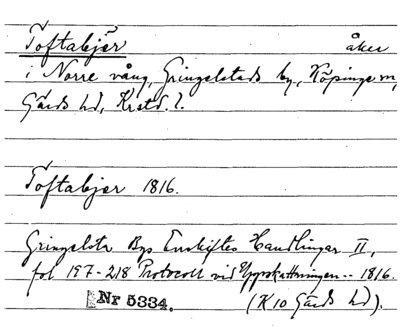 Toftabjer åker
i Norre vång, Gringelstads by, Köpinge sn,
Gärds hd, Krstd. l.
Toftabjer 1816.
Gringelsta Bys Enskiftes Handlingar II,
fol 197-218 Protocoll vid Uppskattningen -- 1816.
Nr 5334. (K 10 Gärds hd).